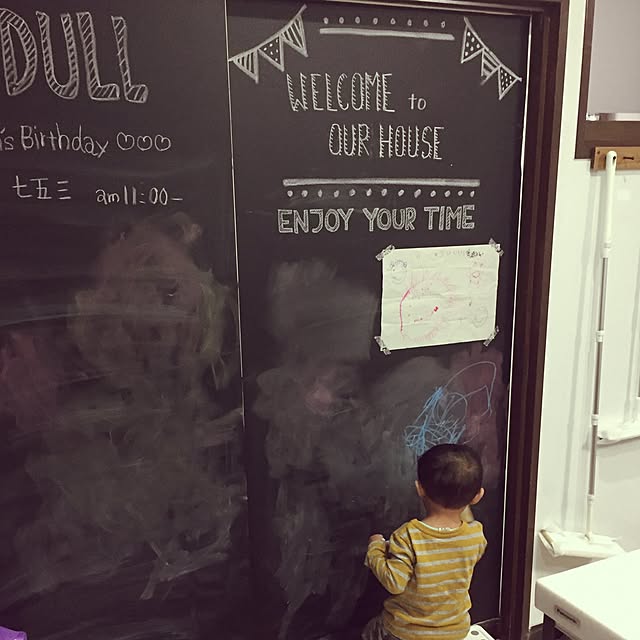 DULL
's Birthday ♡♡♡
七五三 am 11:00-
WELCOME to
OUR HOUSE
ENJOY YOUR TIME